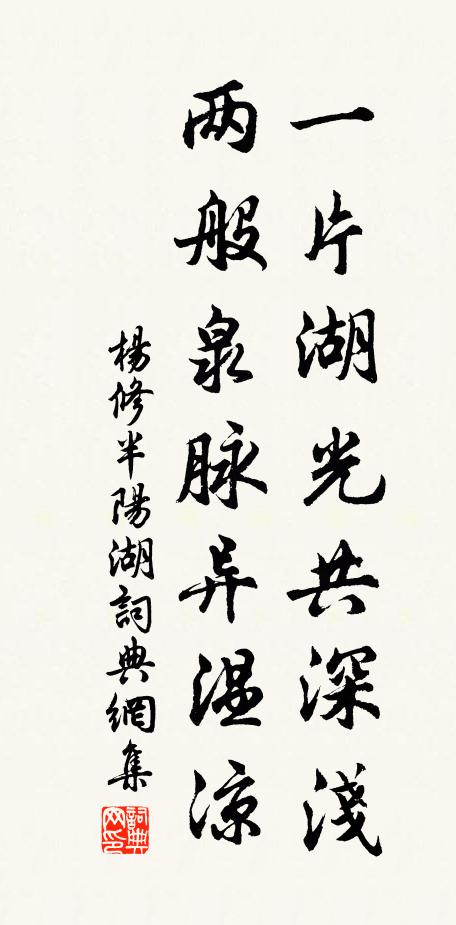 一片湖光共深淺
两般泉脉异温凉
楊修半陽湖詞典網集
詞典网印